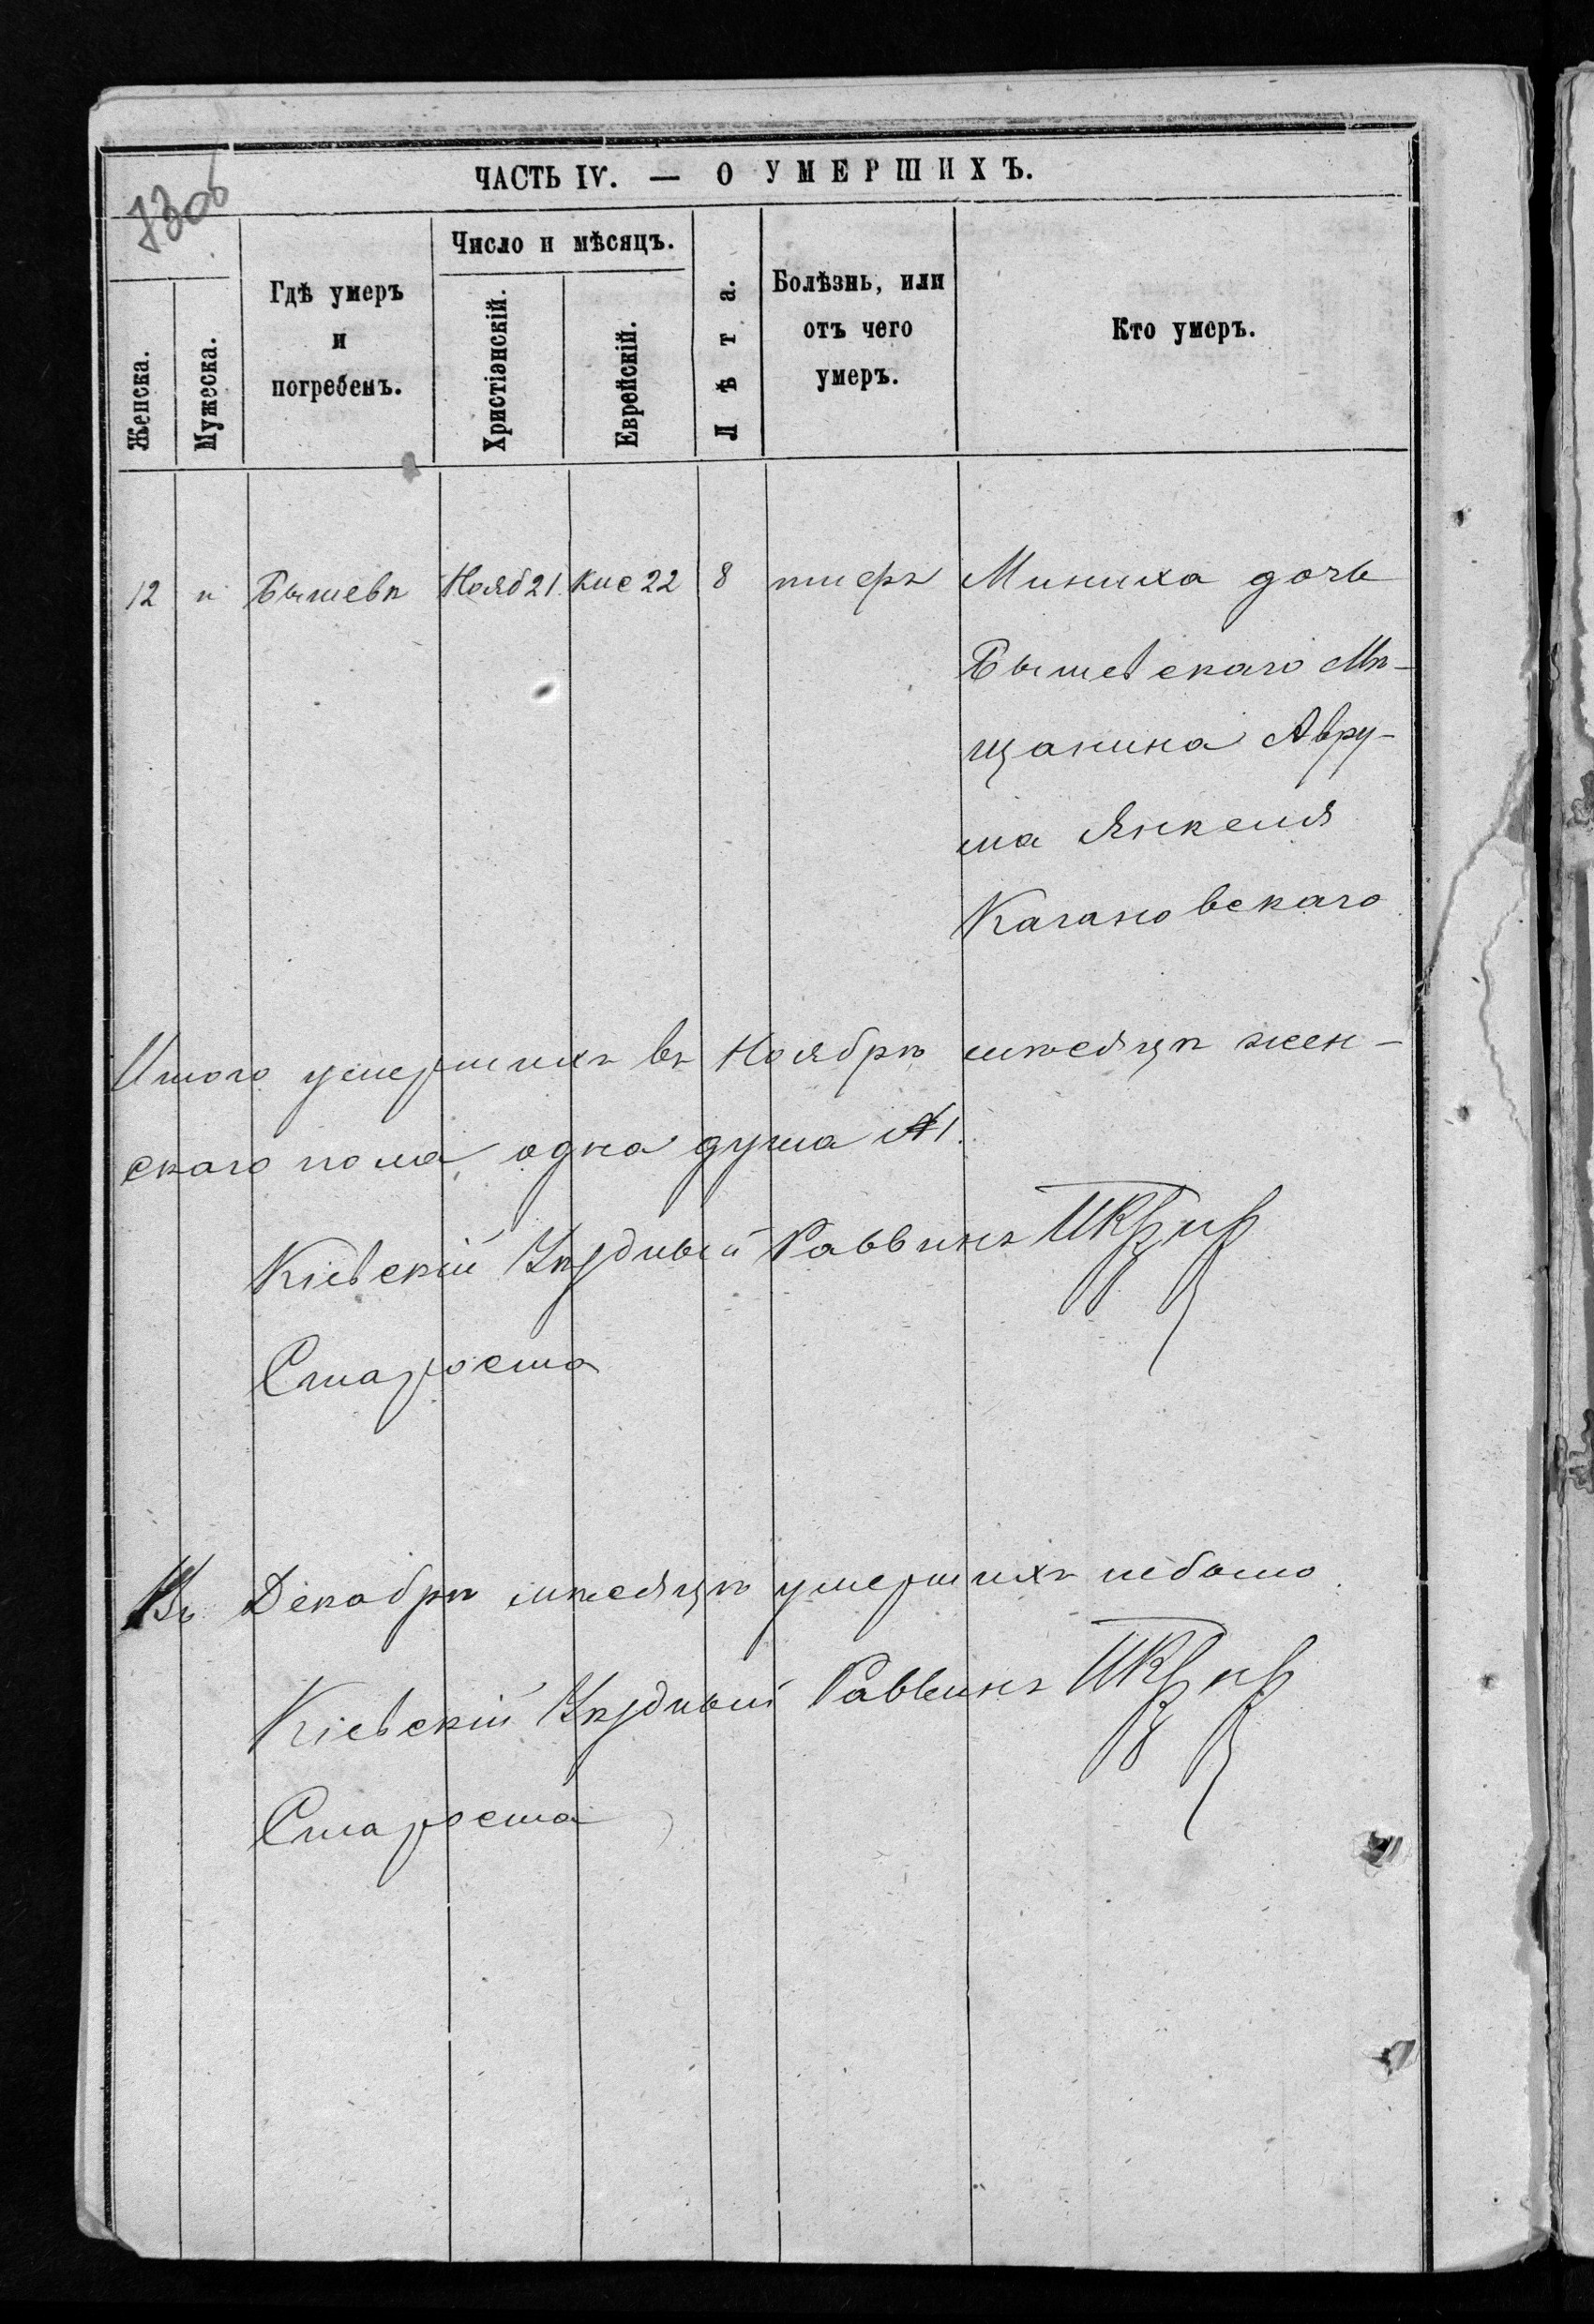 ЧАСТЬ IV. — О УМЕРШИХЪ.
730б
Женска.
Мужеска.
Гдѣ умеръ
и
погребенъ.
Число и мѣсяцъ.
Христіанскій.
Еврейскій.
Лѣта.
Болѣзнь, или
отъ чего
умеръ.
Кто умеръ.
12 " Бышевѣ Нояб 21 Кис 22 8 тифъ Миниха дочь
Бышевскаго Мѣ-
щанина Авру-
ма Янкеля
Кагановскаго
Итого умершихъ въ Ноябрѣ мѣсяцѣ жен-
скаго пола одна душа №1.
Кіевскій Уѣздный Раввинъ
Староста
Въ Декабрѣ мѣсяцѣ умершихъ небыло.
Кіевскій Уѣздный Раввинъ
Староста